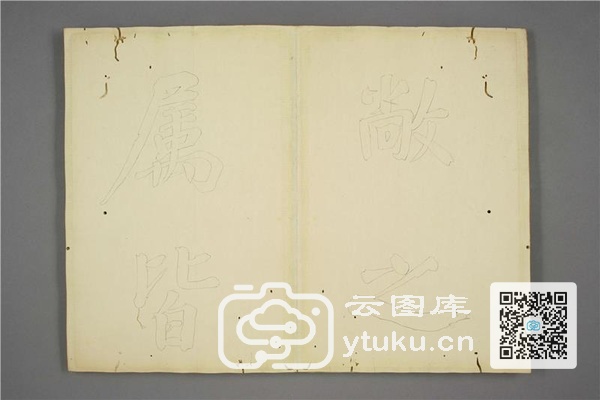 敞之
属皆
云图库
ytuku.cn